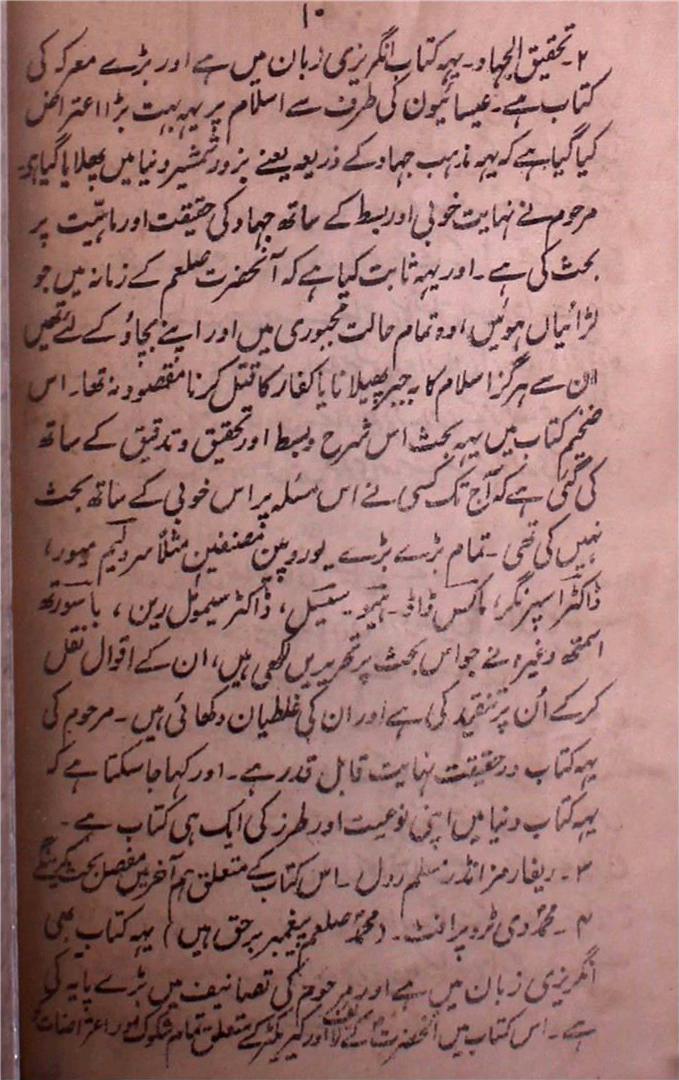 ۱۰
۲۔ تحقیق الجہاد۔ یہہ کتاب انگریزی زبان میں ہے اور بڑے معرکہ کی
کتاب ہے۔ عیسائیون کی طرف سے اسلام پر یہہ بہت بڑا اعتراض
کیا گیا ہے کہ یہہ مذہب جہاد کے ذریعہ یعنے بزور شمشیر دنیا میں پھیلایا گیا ہو۔
مرحوم نے نہایت خوبی اور بسط کے ساتھ جہاد کی حقیقت اور ماہیّت پر
بحث کی ہے۔ اور یہہ ثابت کیا ہے کہ آنحضرت صلعم کے زمانہ میں جو
لڑائیاں ہوئیں، وہ تمام حالت مجبوری میں اور اپنے بچاؤ کے لئے تھیں
ان سے ہرگز اسلام کا بہ جبر پھیلانا یا کفار کا قتل کرنا مقصود نہ تھا۔ اس
ضخیم کتاب میں یہہ بحث اس شرح وبسط اور تحقیق و تدقیق کے ساتھ
کی گئی ہے کہ آج تک کسی نے اس مسئلہ پر اس خوبی کے ساتھ بحث
نہیں کی تھی۔ تمام بڑے بڑے یوروپین مصنفین مثلاً سر ولیم میور،
ڈاکٹر اسپرنگر، مارکس ڈاڈ۔ ہیو۔ سیل، ڈاکٹر سیموئل رین، باسورتھ
اسمتھ وغیرہ نے جو اس بحث پر تحریریں لکھی ہیں، ان کے اقوال نقل
کر کے اُن پر تنقید کی ہے اور ان کی غلطیان دکھائی ہیں۔ مرحوم کی
یہہ کتاب درحقیقت نہایت قابل قدر ہے۔ اور کہا جا سکتا ہے کہ
یہہ کتاب دنیا میں اپنی نوعیت اور طرز کی ایک ہی کتاب ہے۔
۳۔ ریفارمز انڈر مسلم رول۔ اس کتاب کے متعلق ہم آخر میں مفصل بحث کرینگے
۴۔ محمدؐ دی ٹرو پرافٹ۔ (محمد صلعم پیغمبر برحق ہیں) یہہ کتاب بھی
انگریزی زبان میں ہے اور مرحوم کی تصانیف میں بڑے پایہ کی
ہے۔ اس کتاب میں آنحضرت صلعم کے لائف اور کیریکٹر کے متعلق تمام شکوک اور اعتراضات کو